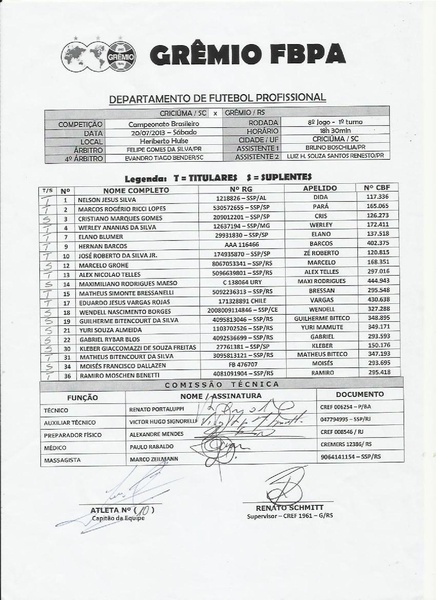 GRÊMIO FBPA
DEPARTAMENTO DE FUTEBOL PROFISSIONAL
CRICIÚMA / SC x GRÊMIO / RS
COMPETIÇÃO Campeonato Brasileiro RODADA 8º Jogo - 1º turno
DATA 20/07/2013 - Sábado HORÁRIO 18h 30min
LOCAL Heriberto Hulse CIDADE / UF CRICIÚMA / SC
ÁRBITRO FELIPE GOMES DA SILVA/PR ASSISTENTE 1 BRUNO BOSCHILIA/PR
4º ÁRBITRO EVANDRO TIAGO BENDER/SC ASSISTENTE 2 LUIZ H. SOUZA SANTOS RENESTO/PR
Legenda: T = TITULARES S = SUPLENTES
T/S Nº NOME COMPLETO Nº RG APELIDO Nº CBF
T 1 NELSON JESUS SILVA 1218826 – SSP/AL DIDA 117.336
T 2 MARCOS ROGÉRIO RICCI LOPES 530572655 – SSP/SP PARÁ 165.065
S 3 CRISTIANO MARQUES GOMES 209012201 – SSP/SP CRIS 126.273
T 4 WERLEY ANANIAS DA SILVA 12637194 – SSP/MG WERLEY 172.411
T 7 ELANO BLUMER 29931830 – SSP/SP ELANO 137.518
T 9 HERNAN BARCOS AAA 116466 BARCOS 402.375
T 10 JOSÉ ROBERTO DA SILVA JR. 174935870 – SSP/SP ZÉ ROBERTO 120.815
S 12 MARCELO GROHE 8067053341 – SSP/RS MARCELO 168.351
T 13 ALEX NICOLAO TELLES 5096639801 – SSP/RS ALEX TELLES 297.016
S 14 MAXIMILIANO RODRIGUES MAESO C 138064 URY MAXI RODRIGUES 444.943
T 15 MATHEUS SIMONTE BRESSANELLI 5092236313 – SSP/RS BRESSAN 295.548
T 17 EDUARDO JESUS VARGAS ROJAS 171328891 CHILE VARGAS 430.638
S 18 WENDELL NASCIMENTO BORGES 2008009114846 – SSP/CE WENDELL 327.288
S 19 GUILHERME BITENCOURT DA SILVA 4095813046 – SSP/RS GUILHERME BITECO 348.895
S 21 YURI SOUZA ALMEIDA 1103702526 – SSP/RS YURI MAMUTE 349.171
S 22 GABRIEL RYBAR BLOS 4092536699 – SSP/RS GABRIEL 293.593
S 30 KLEBER GIACOMAZZI DE SOUZA FREITAS 27761381 – SSP/SP KLEBER 150.176
T 31 MATHEUS BITENCOURT DA SILVA 3095813121 – SSP/RS MATHEUS BITECO 347.193
S 34 MOISÉS FRANCISCO DALLAZEN FB 476707 MOISÉS 293.695
T 36 RAMIRO MOSCHEN BENETTI 4081091904 – SSP/RS RAMIRO 295.418
COMISSÃO TÉCNICA
FUNÇÃO NOME / ASSINATURA DOCUMENTO
TÉCNICO RENATO PORTALUPPI CREF 006254 – P/BA
AUXILIAR TÉCNICO VICTOR HUGO SIGNORELLI 047794995 – SSP/RJ
PREPARADOR FÍSICO ALEXANDRE MENDES CREF 008546 / RJ
MÉDICO PAULO RABALDO CREMERS 12386/ RS
MASSAGISTA MARCO ZEILMANN 9064141154 – SSP/RS
ATLETA Nº (10)
Capitão da Equipe
RENATO SCHMITT
Supervisor – CREF 1961 – G/RS